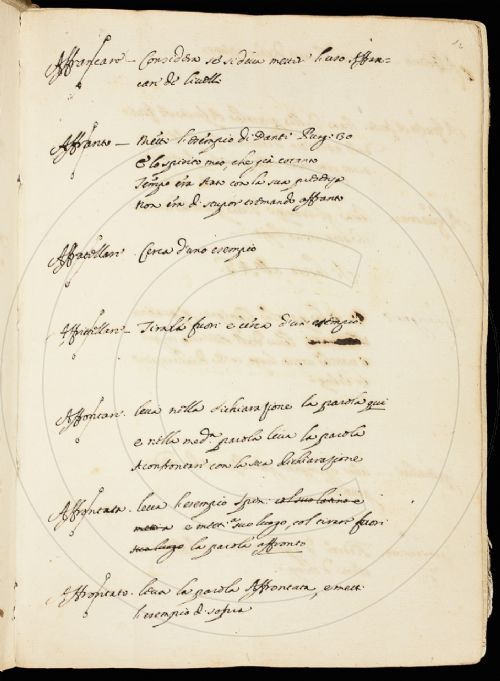 12
Affrancare — Considera se si deva metter l'uso Affran-
cari de livelli
Affranto — Mett. l'esempio di Dante Purg. 130
E lo spirito mio, che già cotanto
Tempo era stato con la sua presenza
Non era di stupor tremando affranto
Affratellare. Cerca d'uno esempio
Affrittellare — Tirala fuori e cerca d'un esempio
Affrontare. leva nella dichiarazione la parola qui
e nella med.a parola leva la parola
Aconfrontari con la sua dichiarazione
Affrontata. leva l'esempio Spen. col suo latino e
metti a e mett. a suo luogo, col tirare fuori
suo luogo la parola affronto
Affrontato. leva la parola Affrontata, e mett.
l'esempio di sopra